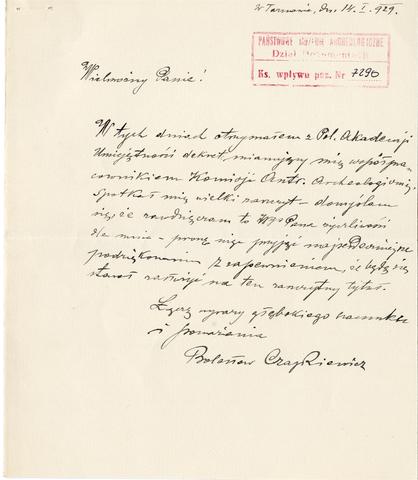 w Tarnowie, dn. 14. I. 929.
PAŃSTWOWE MUZEUM ARCHEOLOGICZNE
Dział Dokumentacji
Ks. wpływu poz. Nr 7290
Wielmożny Panie!
W tych dniach otrzymałem z Pol. Akademji
Umiejętności dekret, mianujący mię współpra-
cownikiem Komisji Antr. Archeologicznej.
Spotkał mię wielki zaszczyt – domyślam
się, że zawdzięczam to WP Pana życzliwości
dla mnie – proszę więc przyjąć najserdeczniejsze
podziękowanie z zapewnieniem, że będę się
starał zasłużyć na ten zaszczytny tytuł.
Łączę wyrazy głębokiego szacunku
i poważania
Bolesław Czapkiewicz